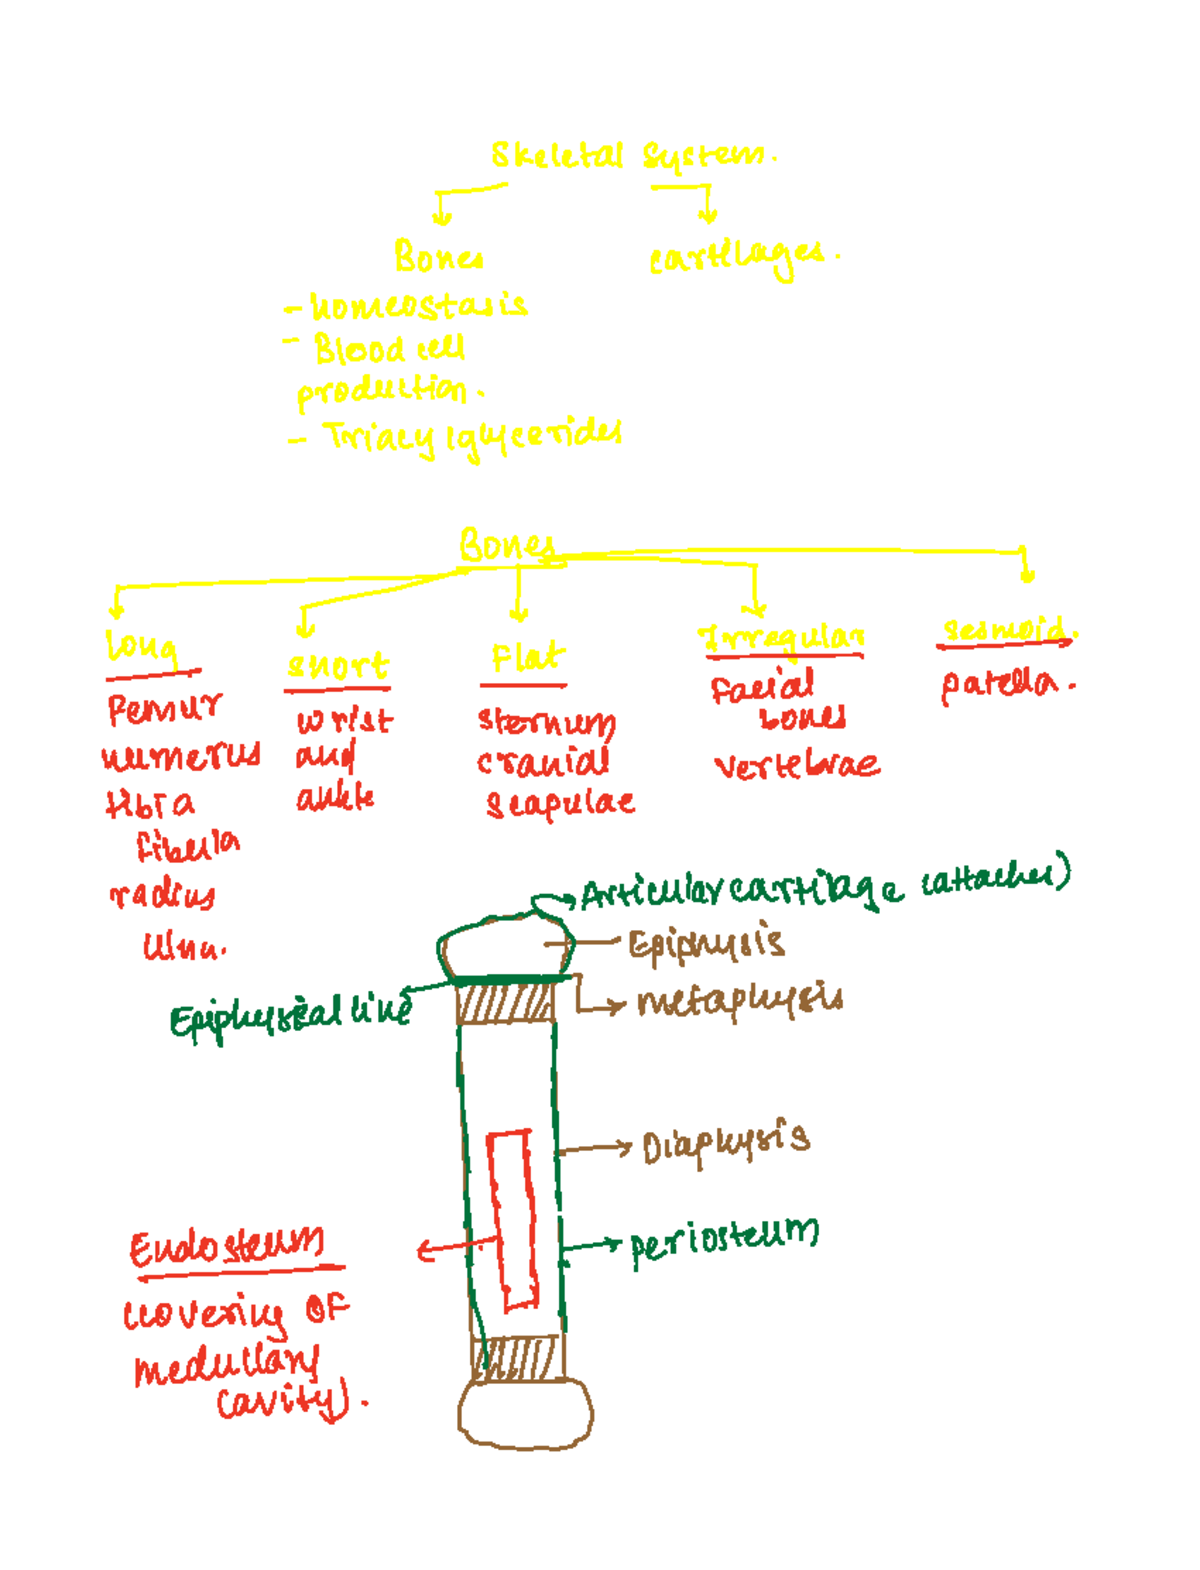 Skeletal System.
Bones
cartilages.
- homeostasis
- Blood cell
production.
- Triacylglycerides
Bones
long
short
Flat
Irregular
sesmoid.
Femur
humerus
tibia
fibula
radius
ulna.
wrist
and
ankle
sternum
cranial
scapulae
facial
bones
vertebrae
patella.
Articular cartilage (attaches)
Epiphysis
metaphysis
Epiphyseal line
Diaphysis
periosteum
Endosteum
(covering of
medullary
cavity).